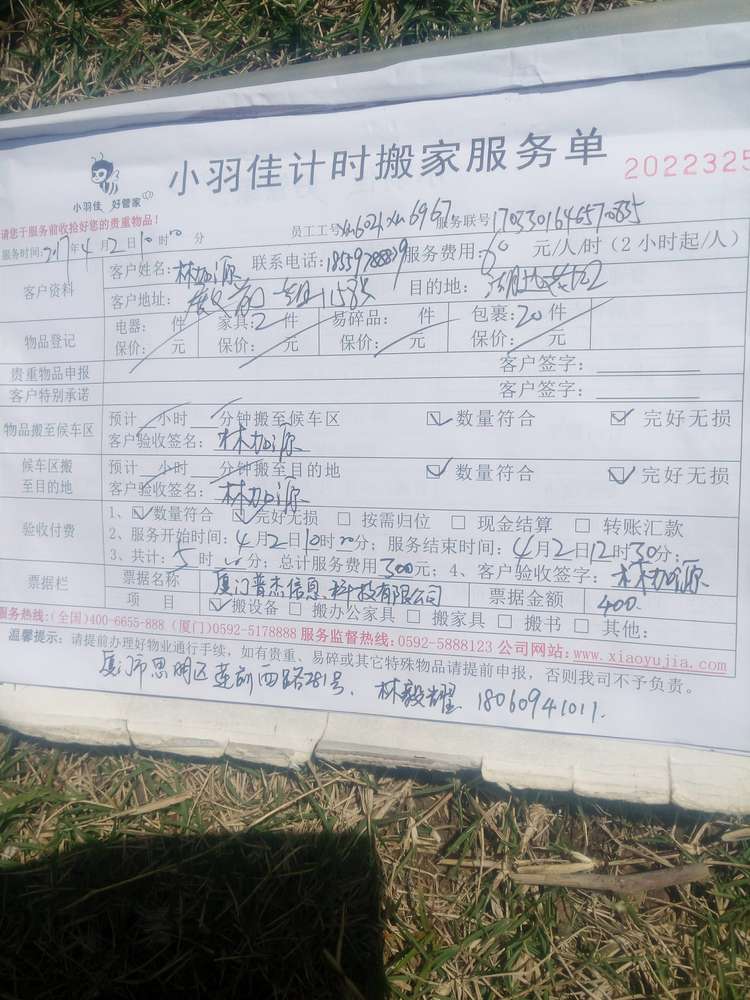 小羽佳 好管家
小羽佳计时搬家服务单
2022325
请您于服务前收拾好您的贵重物品！
员工工号 服务联号17033016465
服务时间:2017年4月2日10时00分
客户资料
客户姓名:林加源 联系电话: 服务费用:80元/人/时（2小时起/人）
客户地址: 目的地:
物品登记
电器: 件 家具:2件 易碎品: 件 包裹:20件
保价: 元 保价: 元 保价: 元 保价: 元
贵重物品申报 客户签字:
客户特别承诺 客户签字:
物品搬至候车区
预计 小时 分钟搬至候车区 ☑数量符合 ☑完好无损
客户验收签名: 林加源
候车区搬至目的地
预计 小时 分钟搬至目的地 ☑数量符合 ☑完好无损
客户验收签名: 林加源
验收付费
1、☑数量符合 ☑完好无损 □按需归位 □现金结算 □转账汇款
2、服务开始时间:4月2日10时00分；服务结束时间:4月2日12时30分；
3、共计:5时00分；总计服务费用300元；4、客户验收签字:林加源
票据栏
票据名称 厦门普杰信息科技有限公司 票据金额 400.
项目 ☑搬设备 □搬办公家具 □搬家具 □搬书 □其他:
服务热线:(全国)400-6655-888 (厦门)0592-5178888 服务监督热线:0592-5888123 公司网站:www.xiaoyujia.com
温馨提示：请提前办理好物业通行手续，如有贵重、易碎或其它特殊物品请提前申报，否则我司不予负责。
厦门市思明区莲前西路281号. 林毅耀 18060941011.